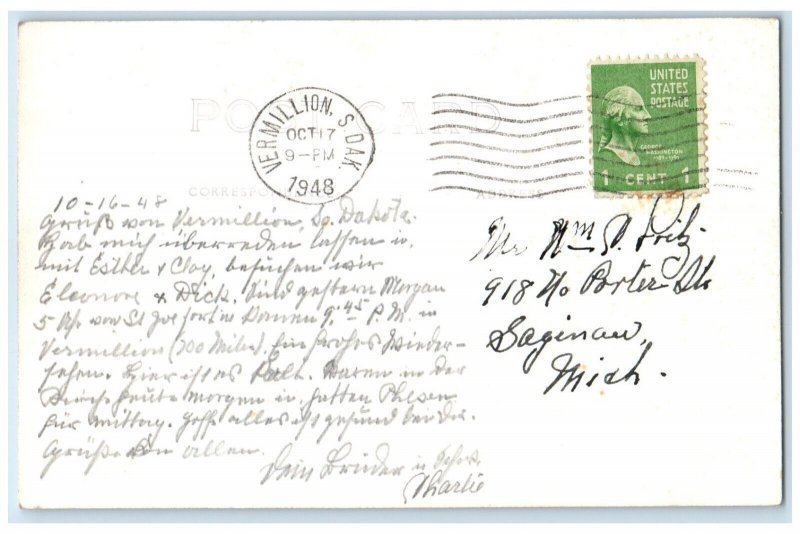 POST CARD
VERMILLION, S.DAK.
OCT 17
9-PM
1948
UNITED
STATES
POSTAGE
GEORGE
WASHINGTON
1 CENT 1
CORRESPO
ADDRESS
10-16-48
Grüß von Vermillion, So. Dakota.
Hab mich überreden lassen u.
mit Esther & Clay, besuchen wir
Eleonore & Dick. Sind gestern Morgan
5 Uhr von St Joe fort u. 9:45 P.M. in
Vermillion (700 Miles). Ein frohes Wieder-
sehen. Hier ist es kalt. Waren in der
Kirche heute Morgen u. hatten
für Mittag. Hoff alles ist gesund bei Dir.
Grüße von allen.
Dein Bruder u.
Charlie
Mr Wm P. Fritz
918 No Porter St
Saginaw,
Mich.